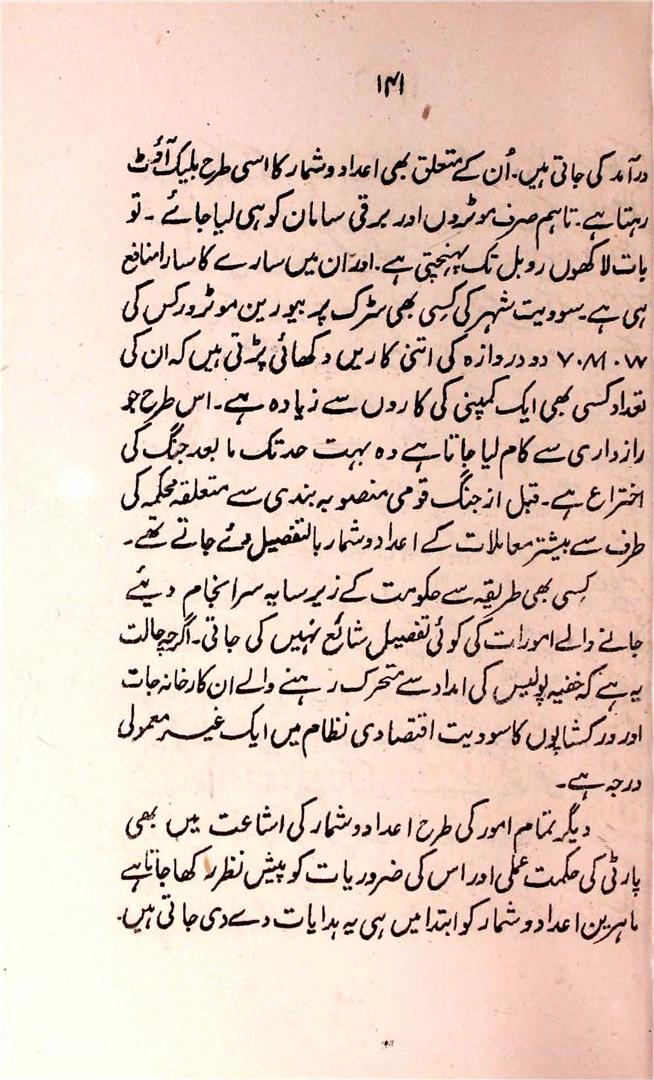 ۱۴۱
درآمد کی جاتی ہیں۔ اُن کے متعلق بھی اعداد و شمار کا اسی طرح بلیک آؤٹ
رہتا ہے۔ تاہم صرف موٹروں اور برقی سامان کو ہی لیا جائے ۔ تو
بات لاکھوں روبل تک پہنچتی ہے۔ اور ان میں سارے کا سارا منافع
ہی ہے۔ سوویت شہر کی کسی بھی سڑک پر بیورین موٹر ورکس کی
دو دروازہ کی اتنی کاریں دکھائی پڑتی ہیں کہ ان کی
تعداد کسی بھی ایک کمپنی کی کاروں سے زیادہ ہے۔ اس طرح جو
رازداری سے کام لیا جاتا ہے وہ بہت حد تک مابعد جنگ کی
اختراع ہے۔ قبل از جنگ قومی منصوبہ بندی سے متعلقہ محکمہ کی
طرف سے بیشتر معاملات کے اعداد و شمار بالتفصیل دئے جاتے تھے۔
کسی بھی طریقہ سے حکومت کے زیر سایہ سرانجام دیئے
جانے والے امورات کی کوئی تفصیل شائع نہیں کی جاتی۔ اگرچہ حالت
یہ ہے کہ خفیہ پولیس کی امداد سے متحرک رہنے والے ان کارخانہ جات
اور ورکشاپوں کا سوویت اقتصادی نظام میں ایک غیر معمولی
درجہ ہے۔
دیگر تمام امور کی طرح اعداد و شمار کی اشاعت میں بھی
پارٹی کی حکمت عملی اور اس کی ضروریات کو پیش نظر رکھا جاتا ہے
ماہرین اعداد و شمار کو ابتدا میں ہی یہ ہدایات دے دی جاتی ہیں۔